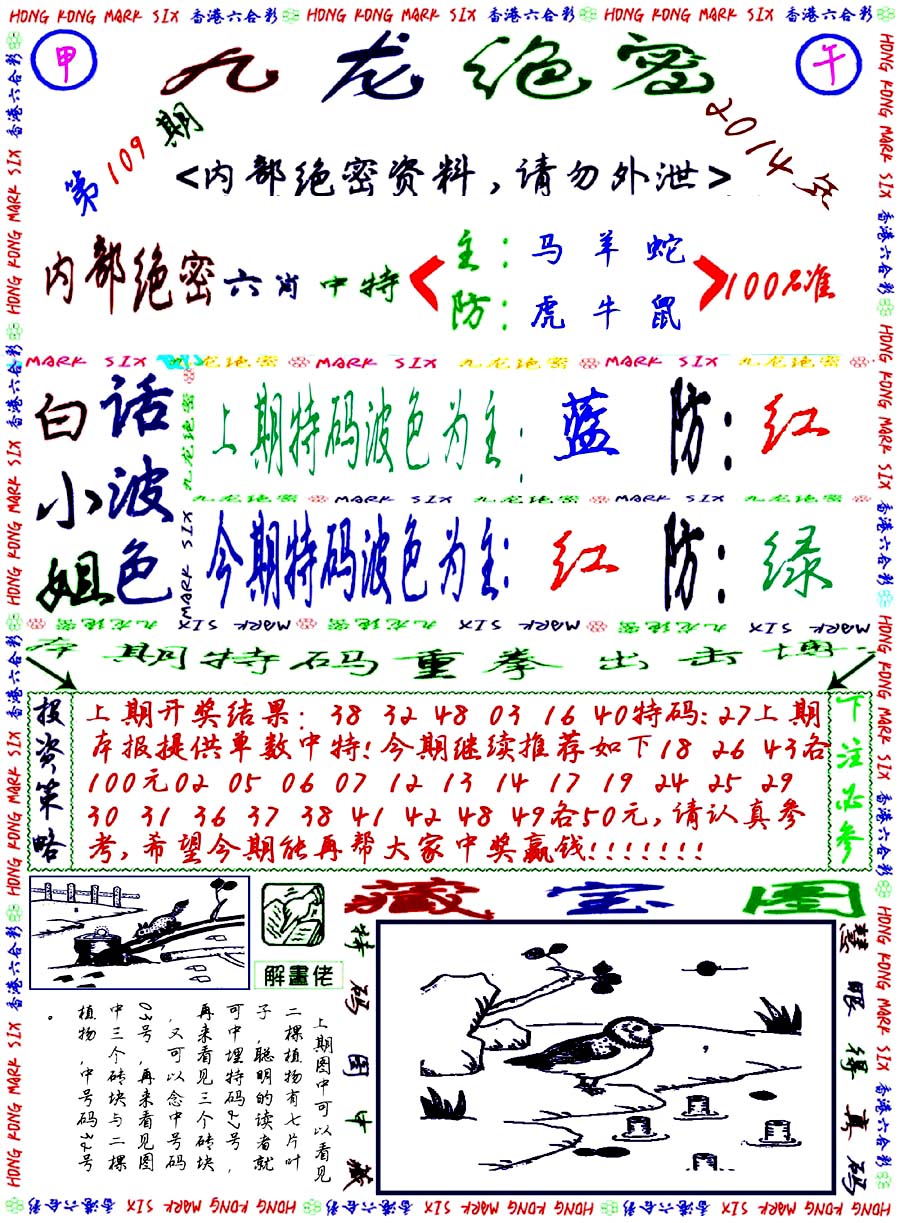 HONG KONG MARK SIX 香港六合彩 HONG KONG MARK SIX 香港六合彩 HONG KONG MARK SIX 香港六合彩
甲
九龙绝密
午
第109期
2014年
<内部绝密资料,请勿外泄>
内部绝密六肖中特
主:马羊蛇
防:虎牛鼠
100%准
MARK SIX 九龙绝密 MARK SIX 九龙绝密 MARK SIX 九龙绝密
白小姐
话波色
上期特码波色为主:蓝 防:红
九龙绝密 MARK SIX 九龙绝密 MARK SIX 九龙绝密
今期特码波色为主:红 防:绿
九龙绝密 MARK SIX 九龙绝密 MARK SIX 九龙绝密 MARK SIX
本期特码重拳出击博
投资策略
上期开奖结果:38 32 48 03 16 40特码:27上期
本报提供单数中特!今期继续推荐如下18 26 43各
100元02 05 06 07 12 13 14 17 19 24 25 29
30 31 36 37 38 41 42 48 49各50元,请认真参
考,希望今期能再帮大家中奖赢钱!!!!!!!
下注必参
藏宝图
解畫佬
特码图中藏
慧眼得真码
上期图中可以看见
二棵植物有七片叶
子,聪明的读者就
可中埋特码27号,
再来看见三个砖块
,又可以念中号码
03号,再来看见图
中三个砖块与二棵
植物,中号码32号
。
HONG KONG MARK SIX 香港六合彩 HONG KONG MARK SIX 香港六合彩 HONG KONG MARK SIX 香港六合彩